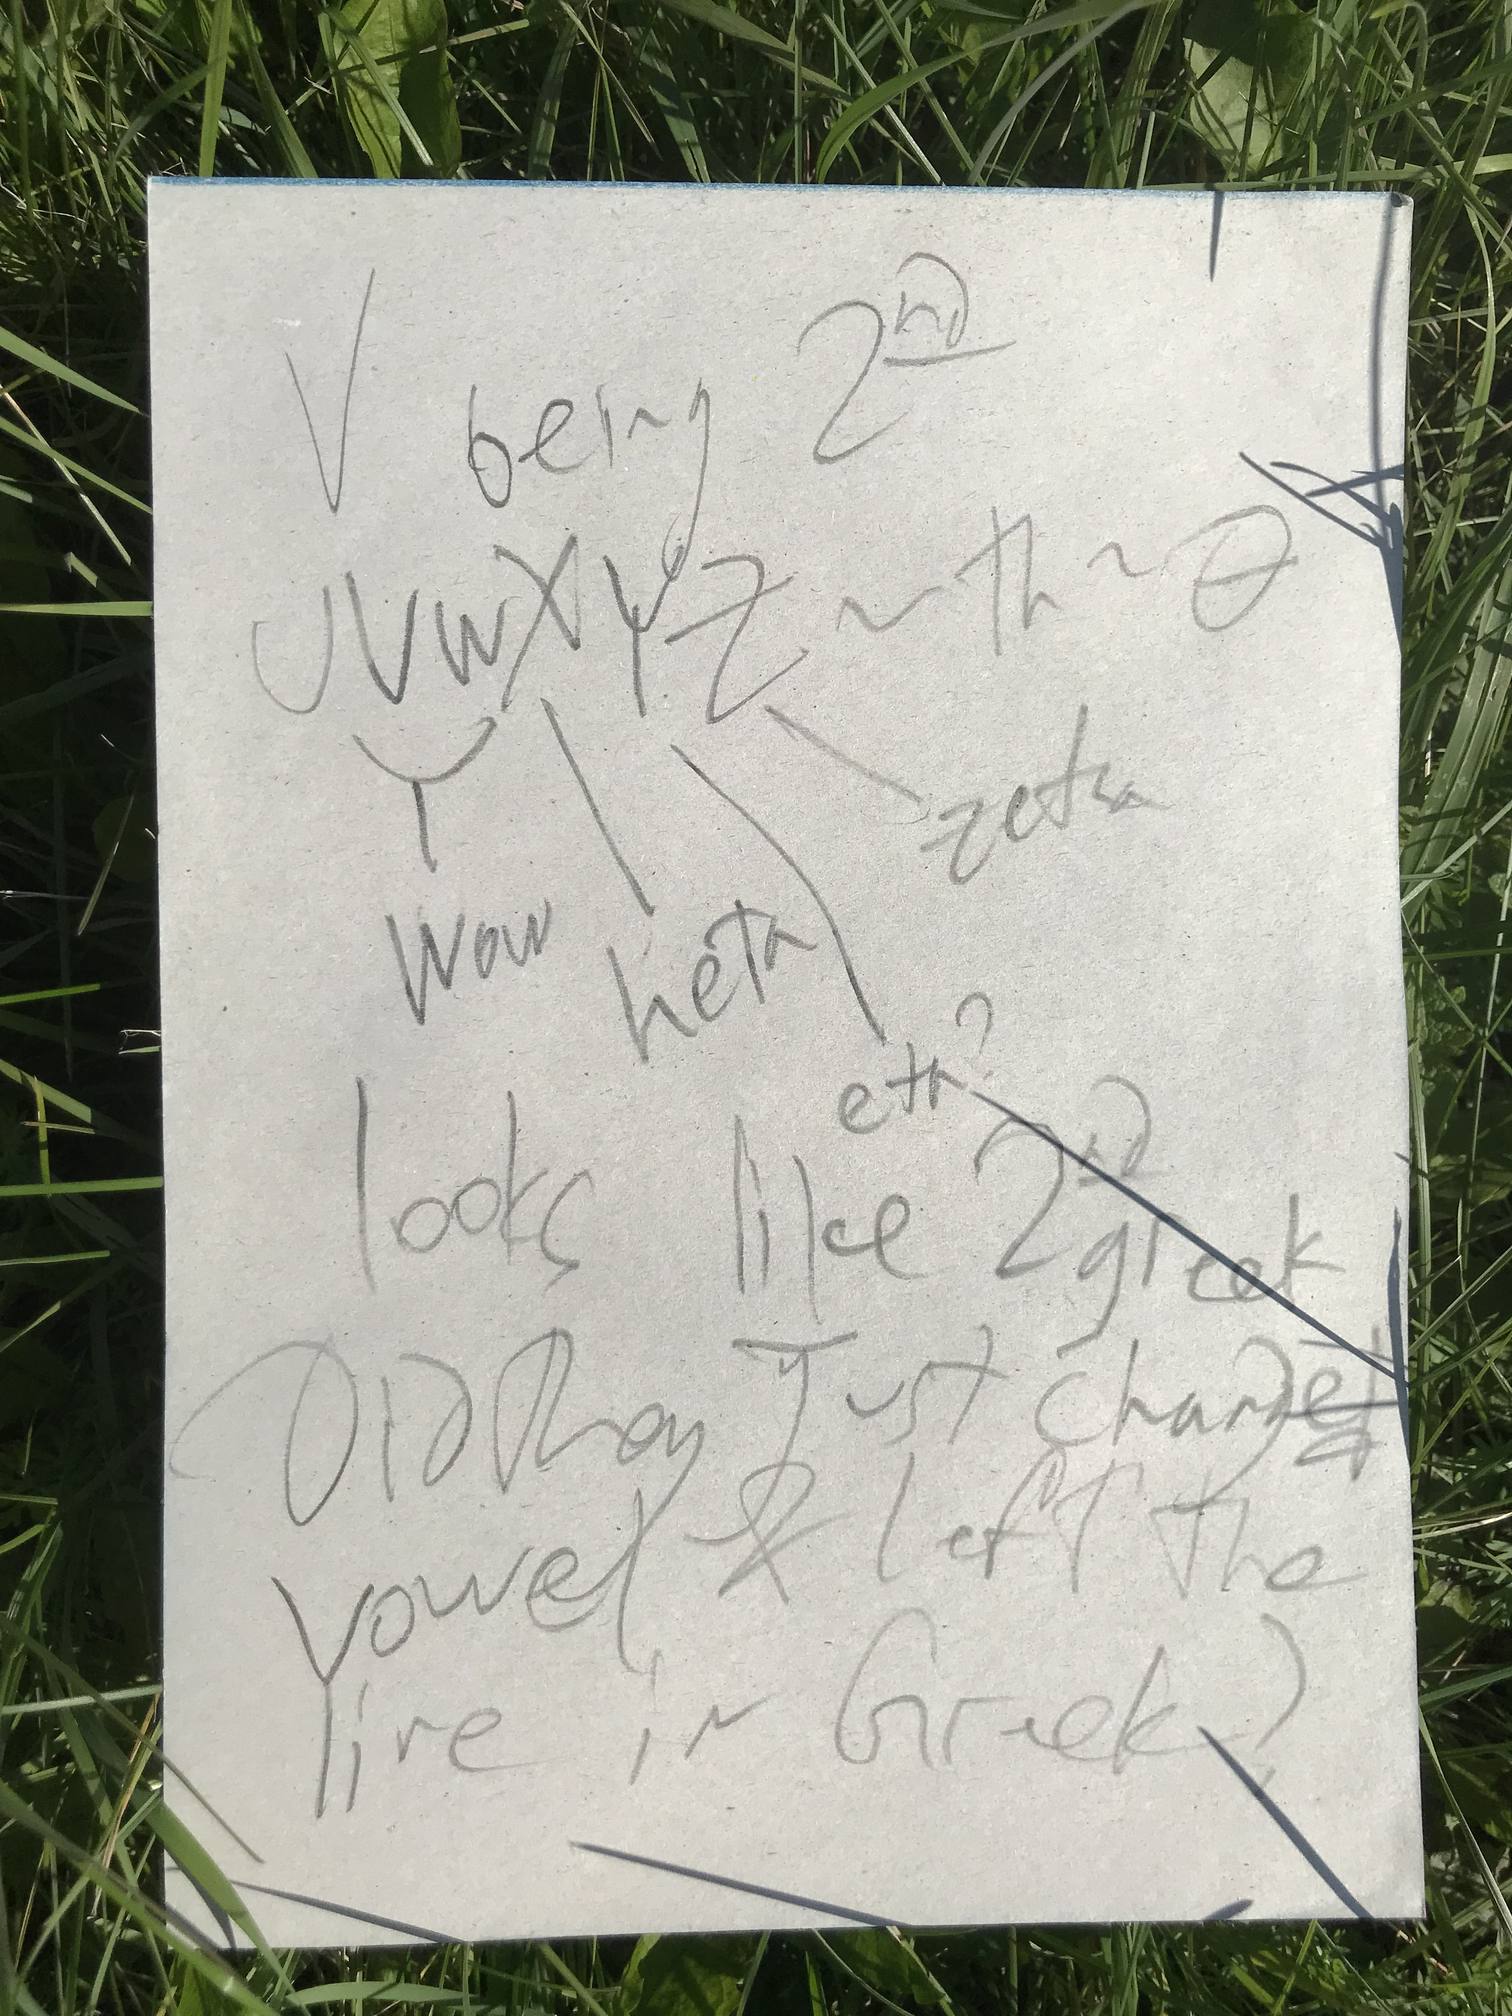 V being 2nd
UVWXYZ ~ Th ~ θ
zeta
Wow heta
eth?
looks like 2nd greek
Did they Just change
vowel & left the
line in Greek?